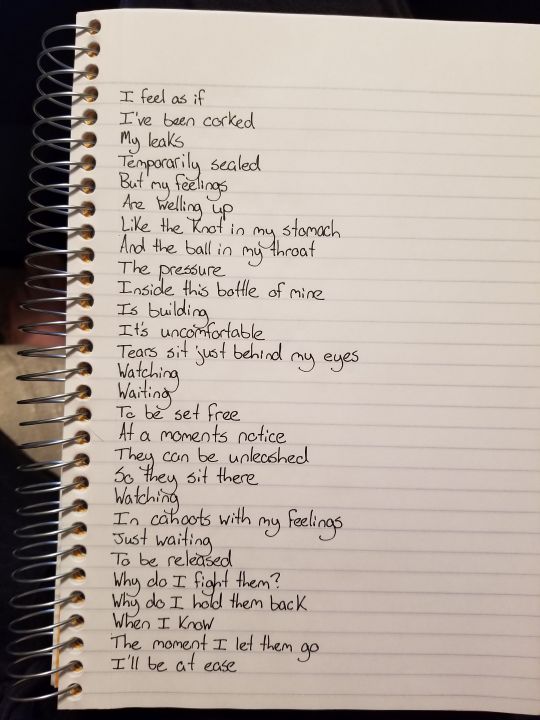 I feel as if
I've been corked
My leaks
Temporarily sealed
But my feelings
Are welling up
Like the knot in my stomach
And the ball in my throat
The pressure
Inside this bottle of mine
Is building
It's uncomfortable
Tears sit just behind my eyes
Watching
Waiting
To be set free
At a moments notice
They can be unleashed
So they sit there
Watching
In cahoots with my feelings
Just waiting
To be released
Why do I fight them?
Why do I hold them back
When I know
The moment I let them go
I'll be at ease